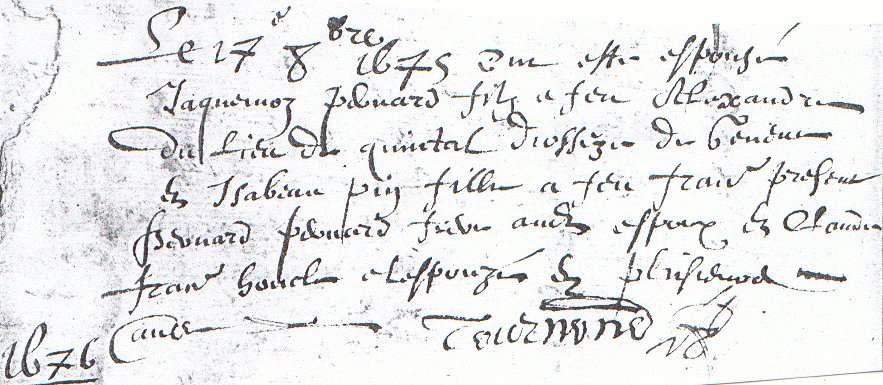 Le 17e 8bre 1675 ont esté espousés
Jaquemoz Peouard filz a feu Alexandre
du lieu de quintal diosseze de Geneve
et Isabeau pin fille a feu Franc present
Peouard frere audt espoux et Claude
Franc oncle a lespouzée et plusieurs
autres Tournond
1676